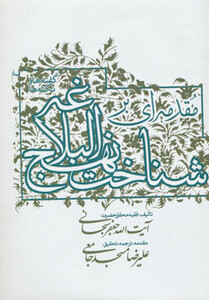 مقدمه‌ای بر
شناخت نهج البلاغه
تألیف: فقیه محقق حضرت
آیت الله جعفر سبحانی
مقدمه، ترجمه، تحقیق:
علیرضا مسجدجامعی